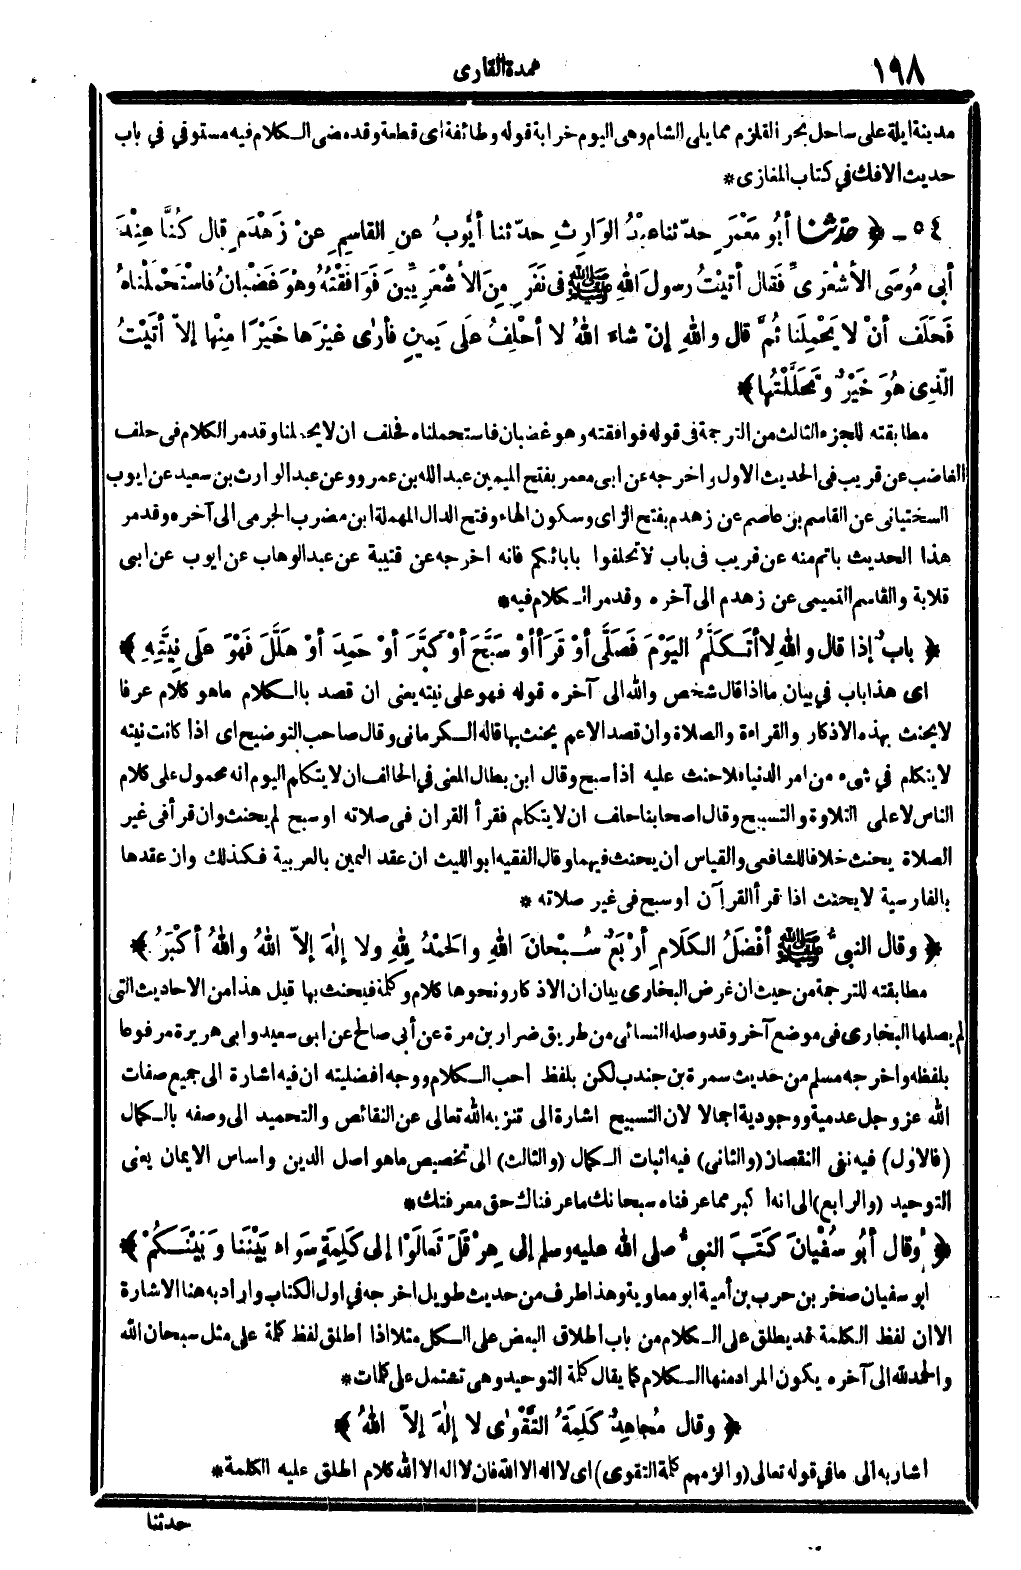 ١٩٨
عمدة القارى
مدينة ايلة على ساحل بحر القلزم مما يلى الشام وهى اليوم خرابة قوله وطائفة اى قطعة وقد مضى الكلام فيه مستوفي في باب
حديث الافك في كتاب المغازى *
٥٤ - ﴿ حَدَّثَنَا أبُو مَعْمَرٍ حدّثنا عبْدُ الوَارِثِ حدّثنا أيُّوبُ عنِ القاسِمِ عنْ زَهْدَمٍ قال كُنَّا عِنْدَ
أبي مُوسَى الأشْعَرِىِّ فَقال أتَيْتُ رسولَ اللهِ ﷺ فى نَفَرٍ مِنَ الأشْعَرِيِّينَ فَوَافَقْتُهُ وهْوَ غَضْبانُ فاسْتَحْمَلْناهُ
فَحَلَف أنْ لا يَحْمِلَنا ثُمَّ قال واللهِ إنْ شاءَ اللهُ لا أحْلِفُ علَى يَمِينٍ فأرٰى غيْرَها خَيْرًا مِنْها إلاّ أتَيْتُ
الّذِى هُوَ خَيْرٌ وتَحَلَّلْتُها ﴾ *
مطابقته للجزء الثالث من الترجمة فى قوله فوافقته وهو غضبان فاستحملناه فحلف ان لا يحملنا وقد مر الكلام فى حلف
الغاضب عن قريب فى الحديث الاول واخرجه عن ابى معمر بفتح الميمين عبد الله بن عمرو وعن عبد الوارث بن سعيد عن ايوب
السختيانى عن القاسم بن عاصم عن زهدم بفتح الزاى وسكون الهاء وفتح الدال المهملة ابن مضرب الجرمى الى آخره وقد مر
هذا الحديث باتم منه عن قريب فى باب لا تحلفوا بابائكم فانه اخرجه عن قتيبة عن عبد الوهاب عن ايوب عن ابى
قلابة والقاسم التميمى عن زهدم الى آخره وقد مر الكلام فيه *
﴿ بابٌ إذا قال واللهِ لا أتَكَلَّمُ اليَوْمَ فَصَلَّى أوْ قَرَأ أوْ سَبَّحَ أوْ كَبَّرَ أوْ حَمِدَ أوْ هَلَّلَ فَهْوَ علَى نِيَّتِهِ ﴾
اى هذا باب في بيان ما اذا قال شخص والله الى آخره قوله فهو على نيته يعنى ان قصد بالكلام ما هو كلام عرفا
لا يحنث بهذه الاذكار والقراءة والصلاة وان قصد الاعم يحنث بها قاله الكرمانى وقال صاحب التوضيح اى اذا كانت نيته
لا يتكلم في شىء من امر الدنيا فلا حنث عليه اذا سبح وقال ابن بطال المعنى في الحالف ان لا يتكلم اليوم انه محمول على كلام
الناس لا على التلاوة والتسبيح وقال اصحابنا حلف ان لا يتكلم فقرأ القرآن فى صلاته او سبح لم يحنث وان قرأ فى غير
الصلاة يحنث خلافا للشافعى والقياس أن يحنث فيهما وقال الفقيه ابو الليث ان عقد اليمين بالعربية فكذلك وان عقدها
بالفارسية لا يحنث اذا قرأ القرآن او سبح فى غير صلاته *
﴿ وقال النبيُّ ﷺ أفْضَلُ الكلَامِ أرْبَعٌ سُبْحانَ اللهِ والحَمْدُ لِلهِ ولا إلٰهَ إلاّ اللهُ واللهُ أكْبَرُ ﴾ *
مطابقته للترجمة من حيث ان غرض البخارى بيان ان الاذكار ونحوها كلام وكلمة فيحنث بها قيل هذا من الاحاديث التى
لم يصلها البخارى فى موضع آخر وقد وصله النسائى من طريق ضرار بن مرة عن أبى صالح عن ابى سعيد وابى هريرة مرفوعا
بلفظه واخرجه مسلم من حديث سمرة بن جندب لكن بلفظ احب الكلام ووجه افضليته ان فيه اشارة الى جميع صفات
الله عز وجل عدمية ووجودية اجمالا لان التسبيح اشارة الى تنزيه الله تعالى عن النقائص والتحميد الى وصفه بالكمال
(فالاول) فيه نفى النقصان (والثانى) فيه اثبات الكمال (والثالث) الى تخصيص ما هو اصل الدين واساس الايمان يعنى
التوحيد (والرابع) الى انه اكبر مما عرفناه سبحانك ما عرفناك حق معرفتك *
﴿ وقال أبُو سُفْيانَ كَتَبَ النبيُّ صلى الله عليه وسلم إلى هِرَقْلَ تَعالَوْا إلى كَلِمَةٍ سَوَاءٍ بَيْنَنا وَبَيْنَكُمْ ﴾ *
ابو سفيان صخر بن حرب بن أمية ابو معاوية وهذا طرف من حديث طويل اخرجه في اول الكتاب وارأد به هنا الاشارة
الا ان لفظ الكلمة قد يطلق على الكلام من باب اطلاق البعض على الكل مثلا اذا اطلق لفظ كلمة على مثل سبحان الله
والحمد لله الى آخره يكون المراد منها الكلام كما يقال كلمة التوحيد وهى تشتمل على كلمات *
﴿ وقال مُجاهِدٌ كَلِمَةُ التَّقْوٰى لا إلٰهَ إلاّ اللهُ ﴾ *
اشار به الى ما في قوله تعالى (والزمهم كلمة التقوى) اى لا اله الا الله فان لا اله الا الله كلام اطلق عليه الكلمة *
حدثنا